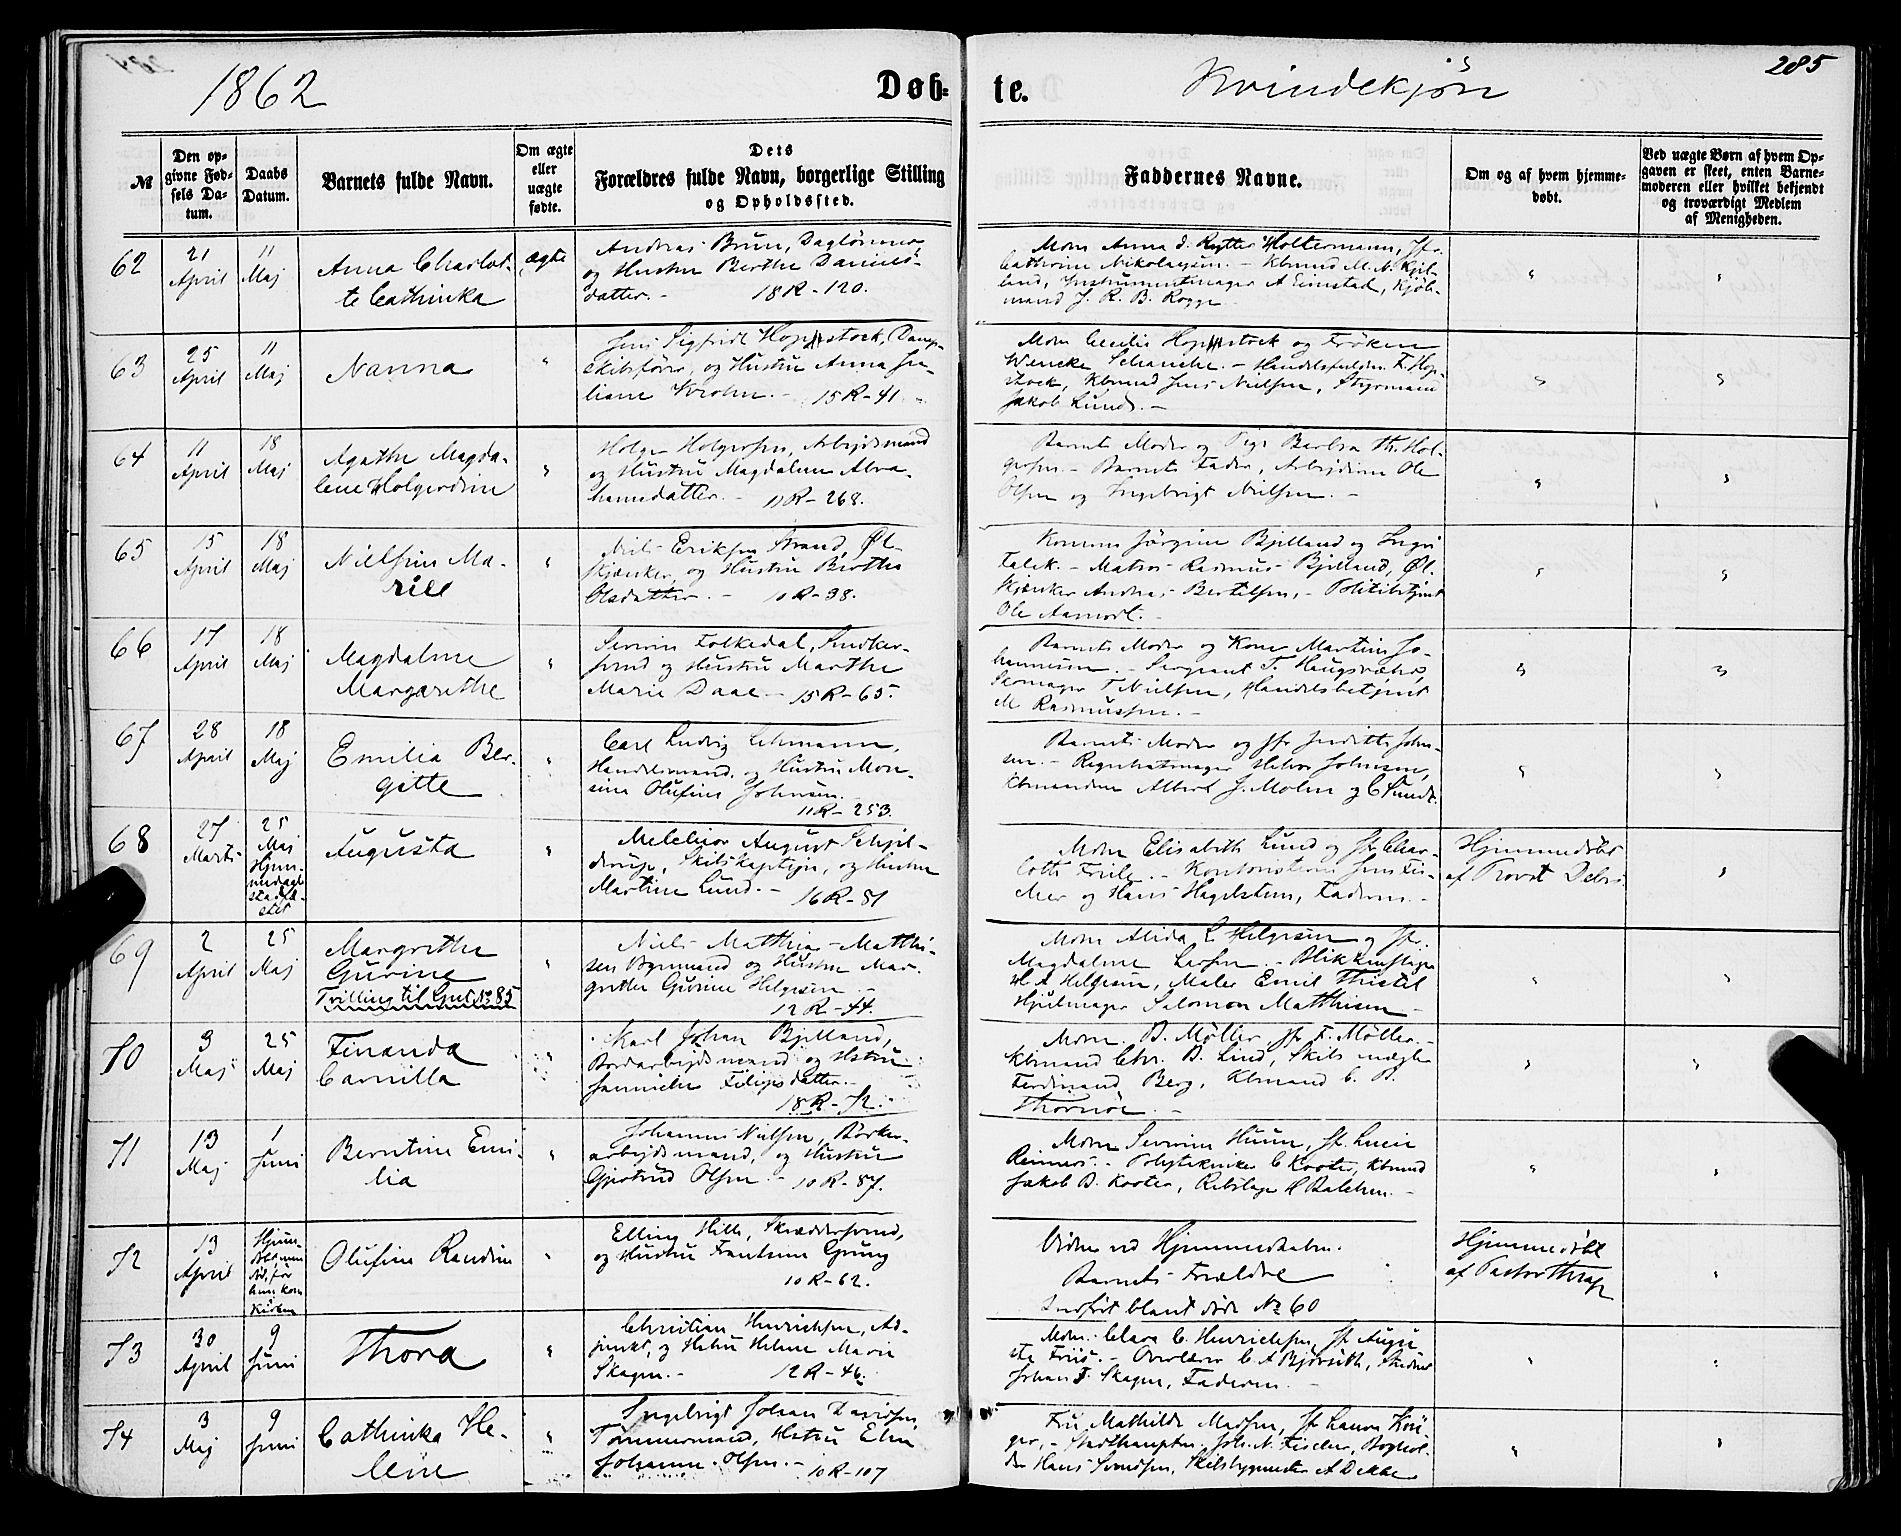 285
1862 Døb- te. Kvindekjøn
№
Den op-
givne Fød-
sels Da-
tum.
Daabs
Datum.
Barnets fulde Navn.
Om ægte
eller
uægte
fødte.
Dets
Forældres fulde Navn, borgerlige Stilling
og Opholdssted.
Faddernes Navne.
Om og af hvem hjemme-
døbt.
Ved uægte Børn af hvem Op-
gaven er skeet, enten Barne-
moderen eller hvilket bekjendt
og troværdigt Medlem
af Menigheden.
62
21
April
11
Maj
Anna Charlot-
te Cathinka
ægte
Andreas Brun, Daglønner,
og Hustru Berthe Daniels-
datter. - 18 R - 120.
Mdm Anna d. Rytter Holtermann, Jfr.
Catherine Nikolaysen. - Kbmnd M. N. Kjil-
land, Instrumentmager A Eimstad, Kjøb-
mand J. R. B. Rogge
63
25
April
11
Maj
Nanna
"
Jens Sigfrid Hopstock, Damp-
skibsfører, og Hustru Anna Ju-
liane Krohn. - 15 R - 41 -
Mdm Cecilie Hopstock og Frøken
Wencke Schanche. - Handelsfuldm. F. Hop-
stock, Kbmnd Jens Nielsen, Styrmand
Jakob Lund. -
64
11
April
18
Maj
Agathe Magda-
lene Holgerdine
"
Holger Holgersen, Arbejdsmand
og Hustru Magdalene Abra-
hamsdatter. - 11 R - 268.
Barnets Moder og Pige Barbra Th. Hol-
gersen. - Barnets Fader, Arbejderne Ole
Olsen og Ingebrigt Nielsen. -
65
15
April
18
Maj
Nielsine Ma-
rill
"
Niels Eriksen Strand, Øl-
skjænker, og Hustru Birthe
Olsdatter. - 10 R - 38.
Konerne Jørgine Bjelland og Inger
Falck. - Matros Rasmus Bjelland, Øl-
skjænker Andreas Bertelsen, - Politibetjent
Ole Aamodt. -
66
17
April
18
Maj
Magdalene
Margarethe
"
Severin Folkedal, Snedker-
svend og Hustru Marthe
Marie Daae - 15 R - 65.
Barnets Moder og Kone Martine Jo-
hannesen. - Sergeant T. Haugsvæhr,
Skomager T Nielsen, Handelsbetjent
M Rasmussen. -
67
28
April
18
Maj
Emilia Ber-
gitte
"
Carl Ludvig Lehmann,
Handelsmand, og Hustru Mon-
sine Olufine Johnsen.
11 R - 253.
Barnets Moder og Jfr Judithe John-
sen. - Regnskabsmager Helvor Johnsen,
Kbmændene Albert J. Mohn og C Sundt.
68
27
Marts
25
Maj
Hjem-
medaab
stadfæ-
stet
Augusta
"
Melchior August Schjel-
derup, Skibskaptejn, og Hustru
Martine Lund. - 16 R - 81
Mdm Elisabeth Lund og Jfr Char-
lotte Friele. - Kontoristerne Jens Fis-
cher og Hans Hagelsteen, Faderen. -
Hjemmedøbt
af Provst Debes.
69
2
April
25
Maj
Margrethe
Gurine
Tvilling til Gut №85
"
Niels Matthias Matthi-
sen Bymand og Hustru Mar-
grethe Gurine Helgesen. -
12 R - 44.
Mdm Alida L Helgesen og Jfr.
Magdalene Larsen. - Blikkenslager
H. A Helgesen, Maler Emil Thistel
Hjulmager Salomon Matthisen -
70
3
Maj
25
Maj
Finanda
Camilla
"
Karl Johan Bjelland,
Bordarbejdsmand og Hstru
Jannicke Filipsdatter. -
18 R - 72. -
Mdm. B. Møller, Jfr F. Møller. -
Kbmand Chr. B. Lind, Skibsmægler
Ferdinand Berg, Kbmand C. B.
Thornøe. -
71
13
Maj
1
Juni
Berntine Emi-
lia
"
Johannes Nielsen, Børker-
arbejdsmand, og Hustru
Gjertrud Olsen - 10 R - 87.
Mdm Severine Huun, Jfr Lucie
Reimers. - Polytekniker C Koster, Kbmnd
Jakob B. Koster, Rebslager H Balchen. -
72
13
April
Hjem-
døbt, men
død, før
hun kom
Kirken
Olufine Randine
"
Elling Hille, Skræddersvend,
og Hustru Frantsine Grung
10 R - 62.
Vidner ved Hjemmedaaben:
Barnets Forældre
Indført blant døde № 60
Hjemmedøbt
af Pastor Thrap
73
30
April
9
Juni
Thora
"
Christian Henrichsen, Ad-
junkt, og Hstru Helene Marie
Skagen. - 12 R - 46.
Mdm. Clara C. Henrichsen, Jfr Augu-
sta Friis. - Overlærer C. A Bjørseth, Student
Johan F. Skagen, Faderen. -
74
3
Maj
9
Juni
Cathinka He-
lene
"
Ingebrigt Johan Davidsen,
Tømmermand, Hstru Elen
Johanne Olsen. - 10 R - 107
Fru Mathilde Madsen, Jfr Laura Krü-
ger. - Stadthauptm. Joh. N. Fischer, Boghol-
der Hans Svendsen, Skibsbygmester A Dekke